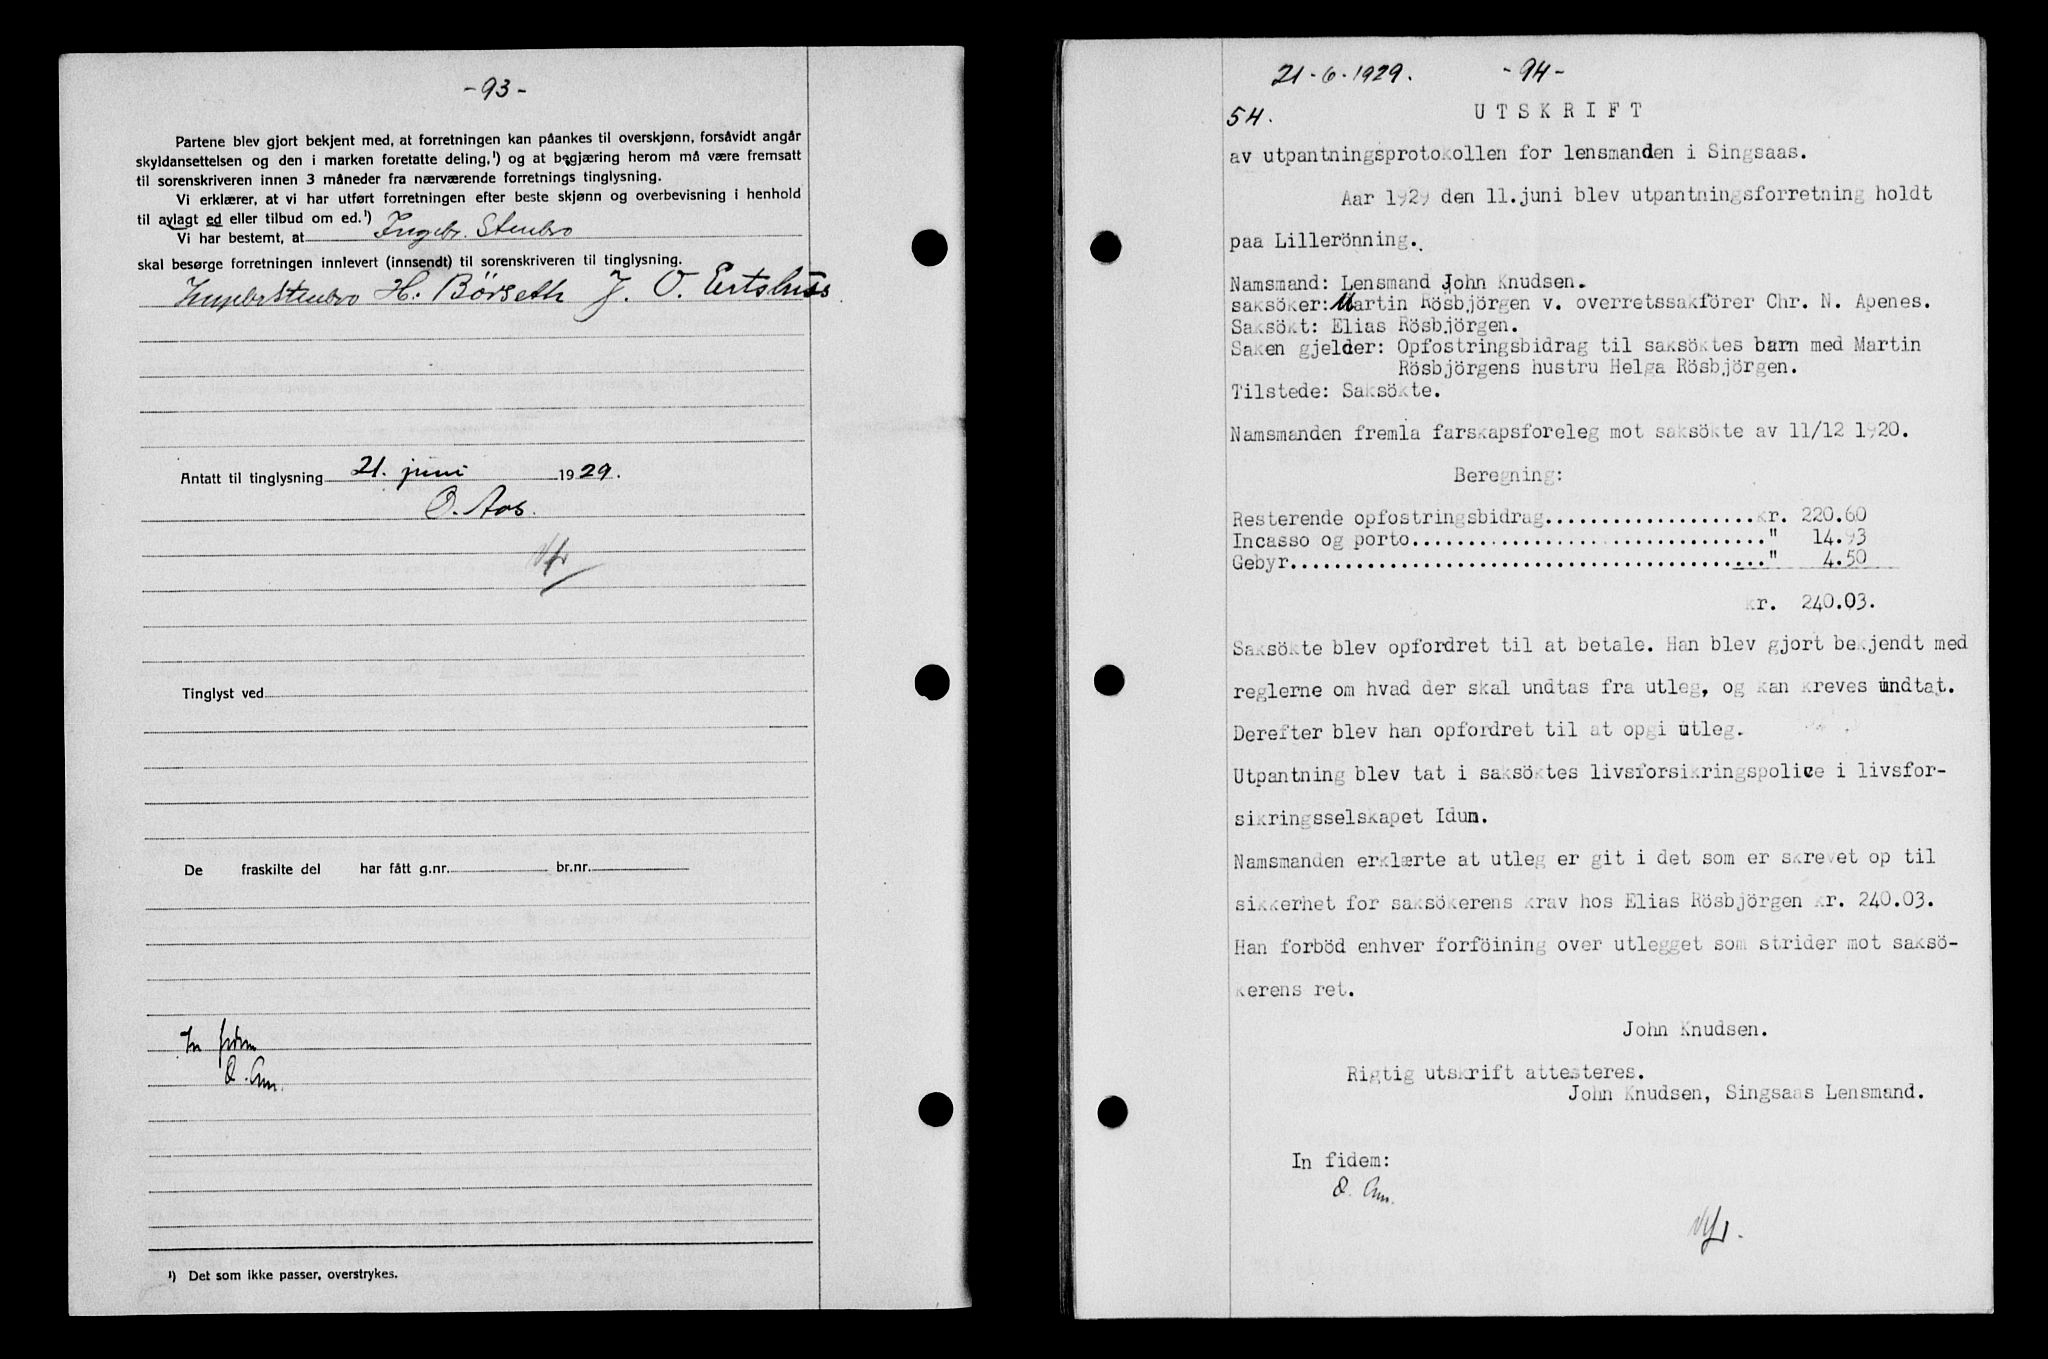 -93-
Partene blev gjort bekjent med, at forretningen kan påankes til overskjønn, forsåvidt angår
skyldansettelsen og den i marken foretatte deling,¹) og at begjæring herom må være fremsatt
til sorenskriveren innen 3 måneder fra nærværende forretnings tinglysning.
Vi erklærer, at vi har utført forretningen efter beste skjønn og overbevisning i henhold
til avlagt ed eller tilbud om ed.¹)
Vi har bestemt, at Ingebr. Stenbro
skal besørge forretningen innlevert (innsendt) til sorenskriveren til tinglysning.
Ingebr Stenbro H. Börseth J. O. Ertshus
Antatt til tinglysning 21. juni 1929.
O. Aas.
Tinglyst ved
De fraskilte del har fått g.nr. br.nr.
In fidem
¹) Det som ikke passer, overstrykes.
21-6-1929. -94-
54. UTSKRIFT
av utpantningsprotokollen for lensmanden i Singsaas.
Aar 1929 den 11.juni blev utpantningsforretning holdt
paa Lillerönning.
Namsmand: Lensmand John Knudsen.
saksöker: Martin Rösbjörgen v. overretssakförer Chr. N. Apenes.
Saksökt: Elias Rösbjörgen.
Saken gjelder: Opfostringsbidrag til saksöktes barn med Martin
Rösbjörgens hustru Helga Rösbjörgen.
Tilstede: Saksökte.
Namsmanden fremla farskapsforeleg mot saksökte av 11/12 1920.
Beregning:
Resterende opfostringsbidrag...................kr. 220.60
Incasso og porto................................" 14.93
Gebyr..........................................." 4.50
kr. 240.03.
Saksökte blev opfordret til at betale. Han blev gjort bekjendt med
reglerne om hvad der skal undtas fra utleg, og kan kreves undtat.
Derefter blev han opfordret til at opgi utleg.
Utpantning blev tat i saksöktes livsforsikringspolice i livsfor-
sikringsselskapet Idun.
Namsmanden erklærte at utleg er git i det som er skrevet op til
sikkerhet for saksökerens krav hos Elias Rösbjörgen kr. 240.03.
Han forböd enhver forföining over utlegget som strider mot saksö-
kerens ret.
John Knudsen.
Rigtig utskrift attesteres.
John Knudsen, Singsaas Lensmand.
In fidem: